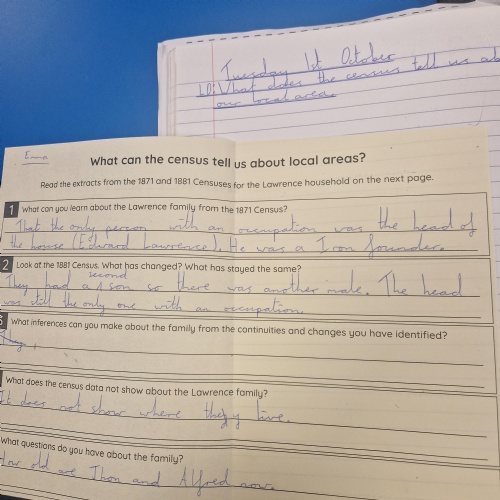 Tuesday 1st October
LO: What does the census tell us ab
our local area.
Emma
What can the census tell us about local areas?
Read the extracts from the 1871 and 1881 Censuses for the Lawrence household on the next page.
1 What can you learn about the Lawrence family from the 1871 Census?
That the only person with an occupation was the head of
the house (Edward Lawrence). He was a Iron founder.
2 Look at the 1881 Census. What has changed? What has stayed the same?
second
They had a son so there was another male. The head
was still the only one with an occupation.
3 What inferences can you make about the family from the continuities and changes you have identified?
They
What does the census data not show about the Lawrence family?
It does not show where they live.
What questions do you have about the family?
How old are Jhon and Alfred now.